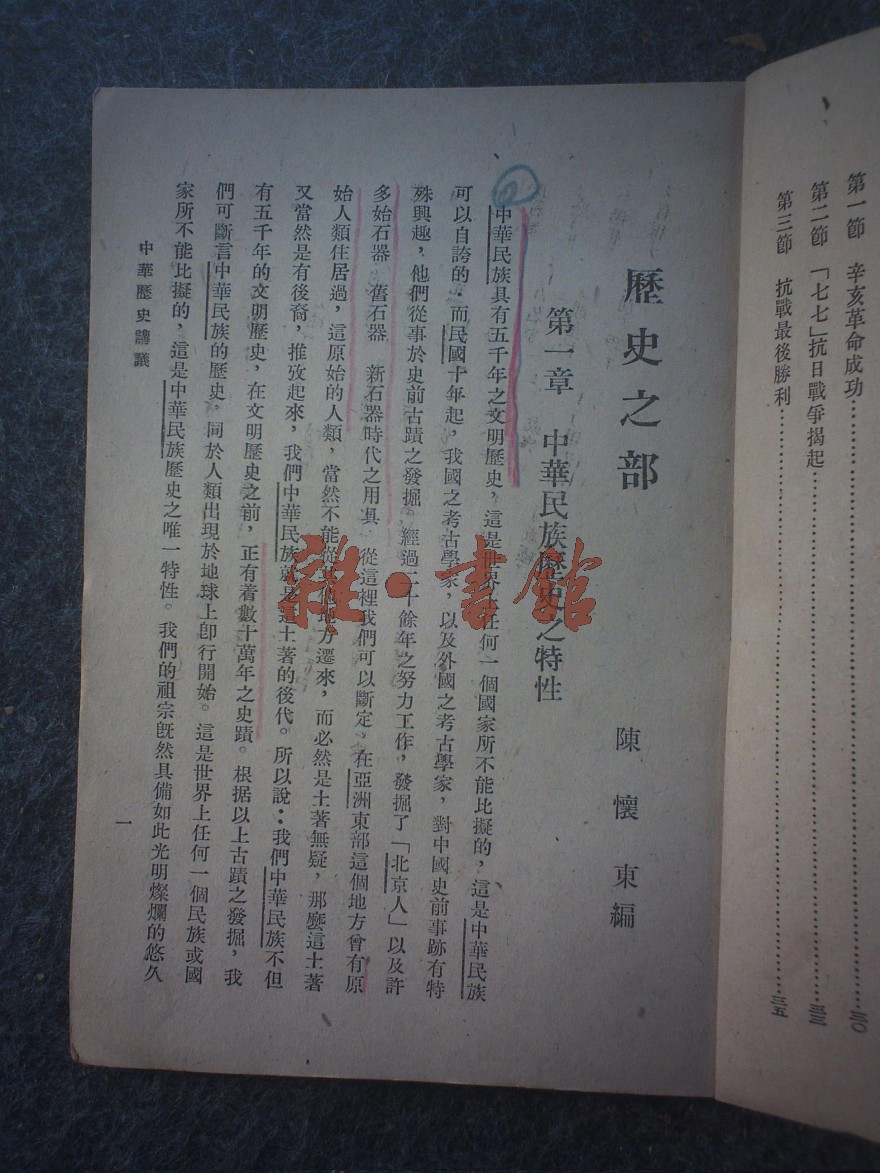 第一節　辛亥革命成功………………三〇
第二節　「七七」抗日戰爭揭起………………三三
第三節　抗戰最後勝利………………三五
歷史之部
陳懷東編
第一章　中華民族歷史之特性
中華民族具有五千年之文明歷史，這是世界上任何一個國家所不能比擬的，這是中華民族
可以自誇的．而民國十年起，我國之考古學家，以及外國之考古學家，對中國史前事跡有特
殊興趣，他們從事於史前古蹟之發掘，經過二十餘年之努力工作，發掘了「北京人」以及許
多始石器　舊石器　新石器時代之用具　從這裡我們可以斷定，在亞洲東部這個地方曾有原
始人類住居過，這原始的人類，當然不能從其他地方遷來，而必然是土著無疑，那麼這土著
又當然是有後裔，推攷起來，我們中華民族就是這土著的後代。所以說：我們中華民族不但
有五千年的文明歷史，在文明歷史之前，正有着數十萬年之史蹟。根据以上古蹟之發掘，我
們可斷言中華民族的歷史，同於人類出現於地球上卽行開始。這是世界上任何一個民族或國
家所不能比擬的，這是中華民族歷史之唯一特性。我們的祖宗旣然具備如此光明燦爛的悠久
中華歷史講義
一
雜·書館